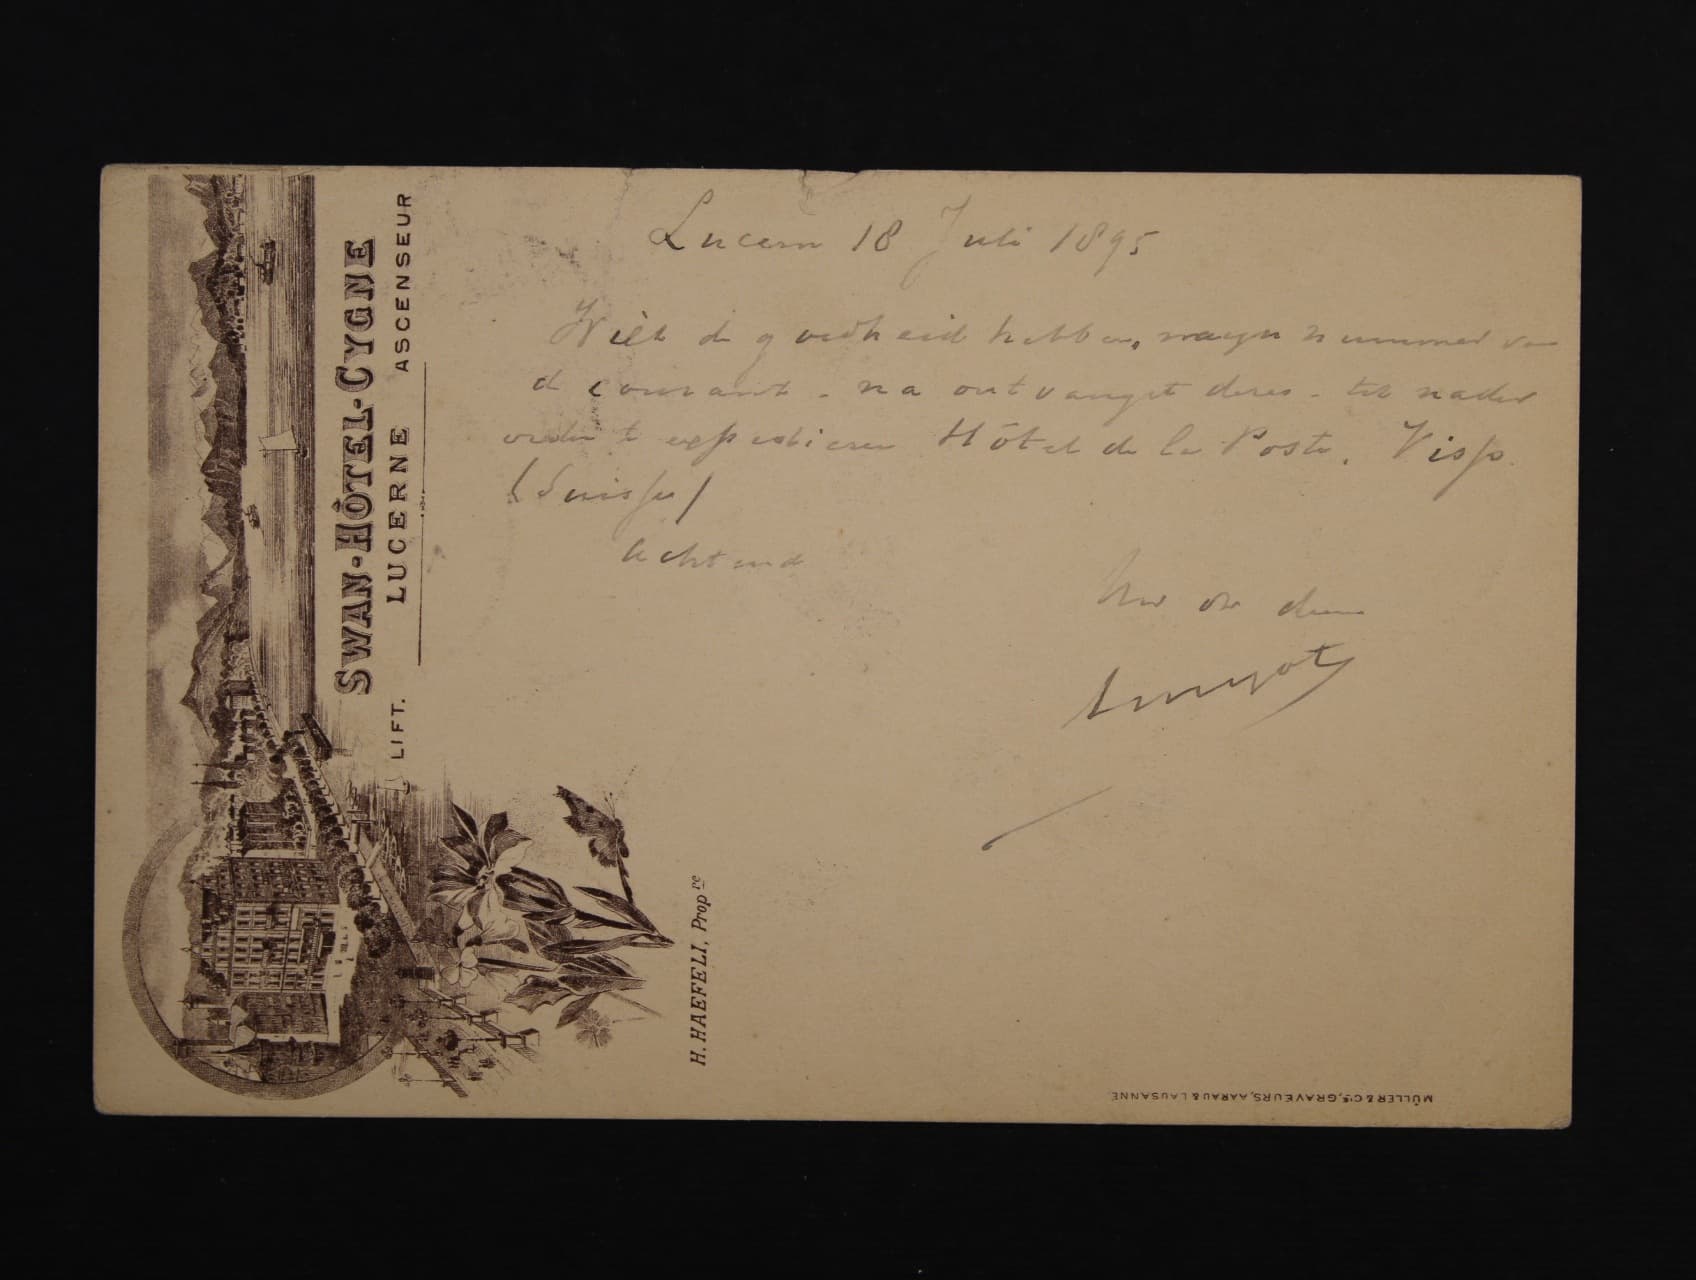 SWAN-HÔTEL-CYGNE
LIFT. LUCERNE ASCENSEUR
H. HAEFELI, Propre
Lucern 18 Juli 1895
Wilt de goedheid hebben, nummer van
de courant - na ontvangst dezes - tot nader
order te expedieeren Hôtel de la Poste, Visp
(Suisse)
Achtend
Uw dw
MÜLLER & Cie, GRAVEURS, AARAU & LAUSANNE